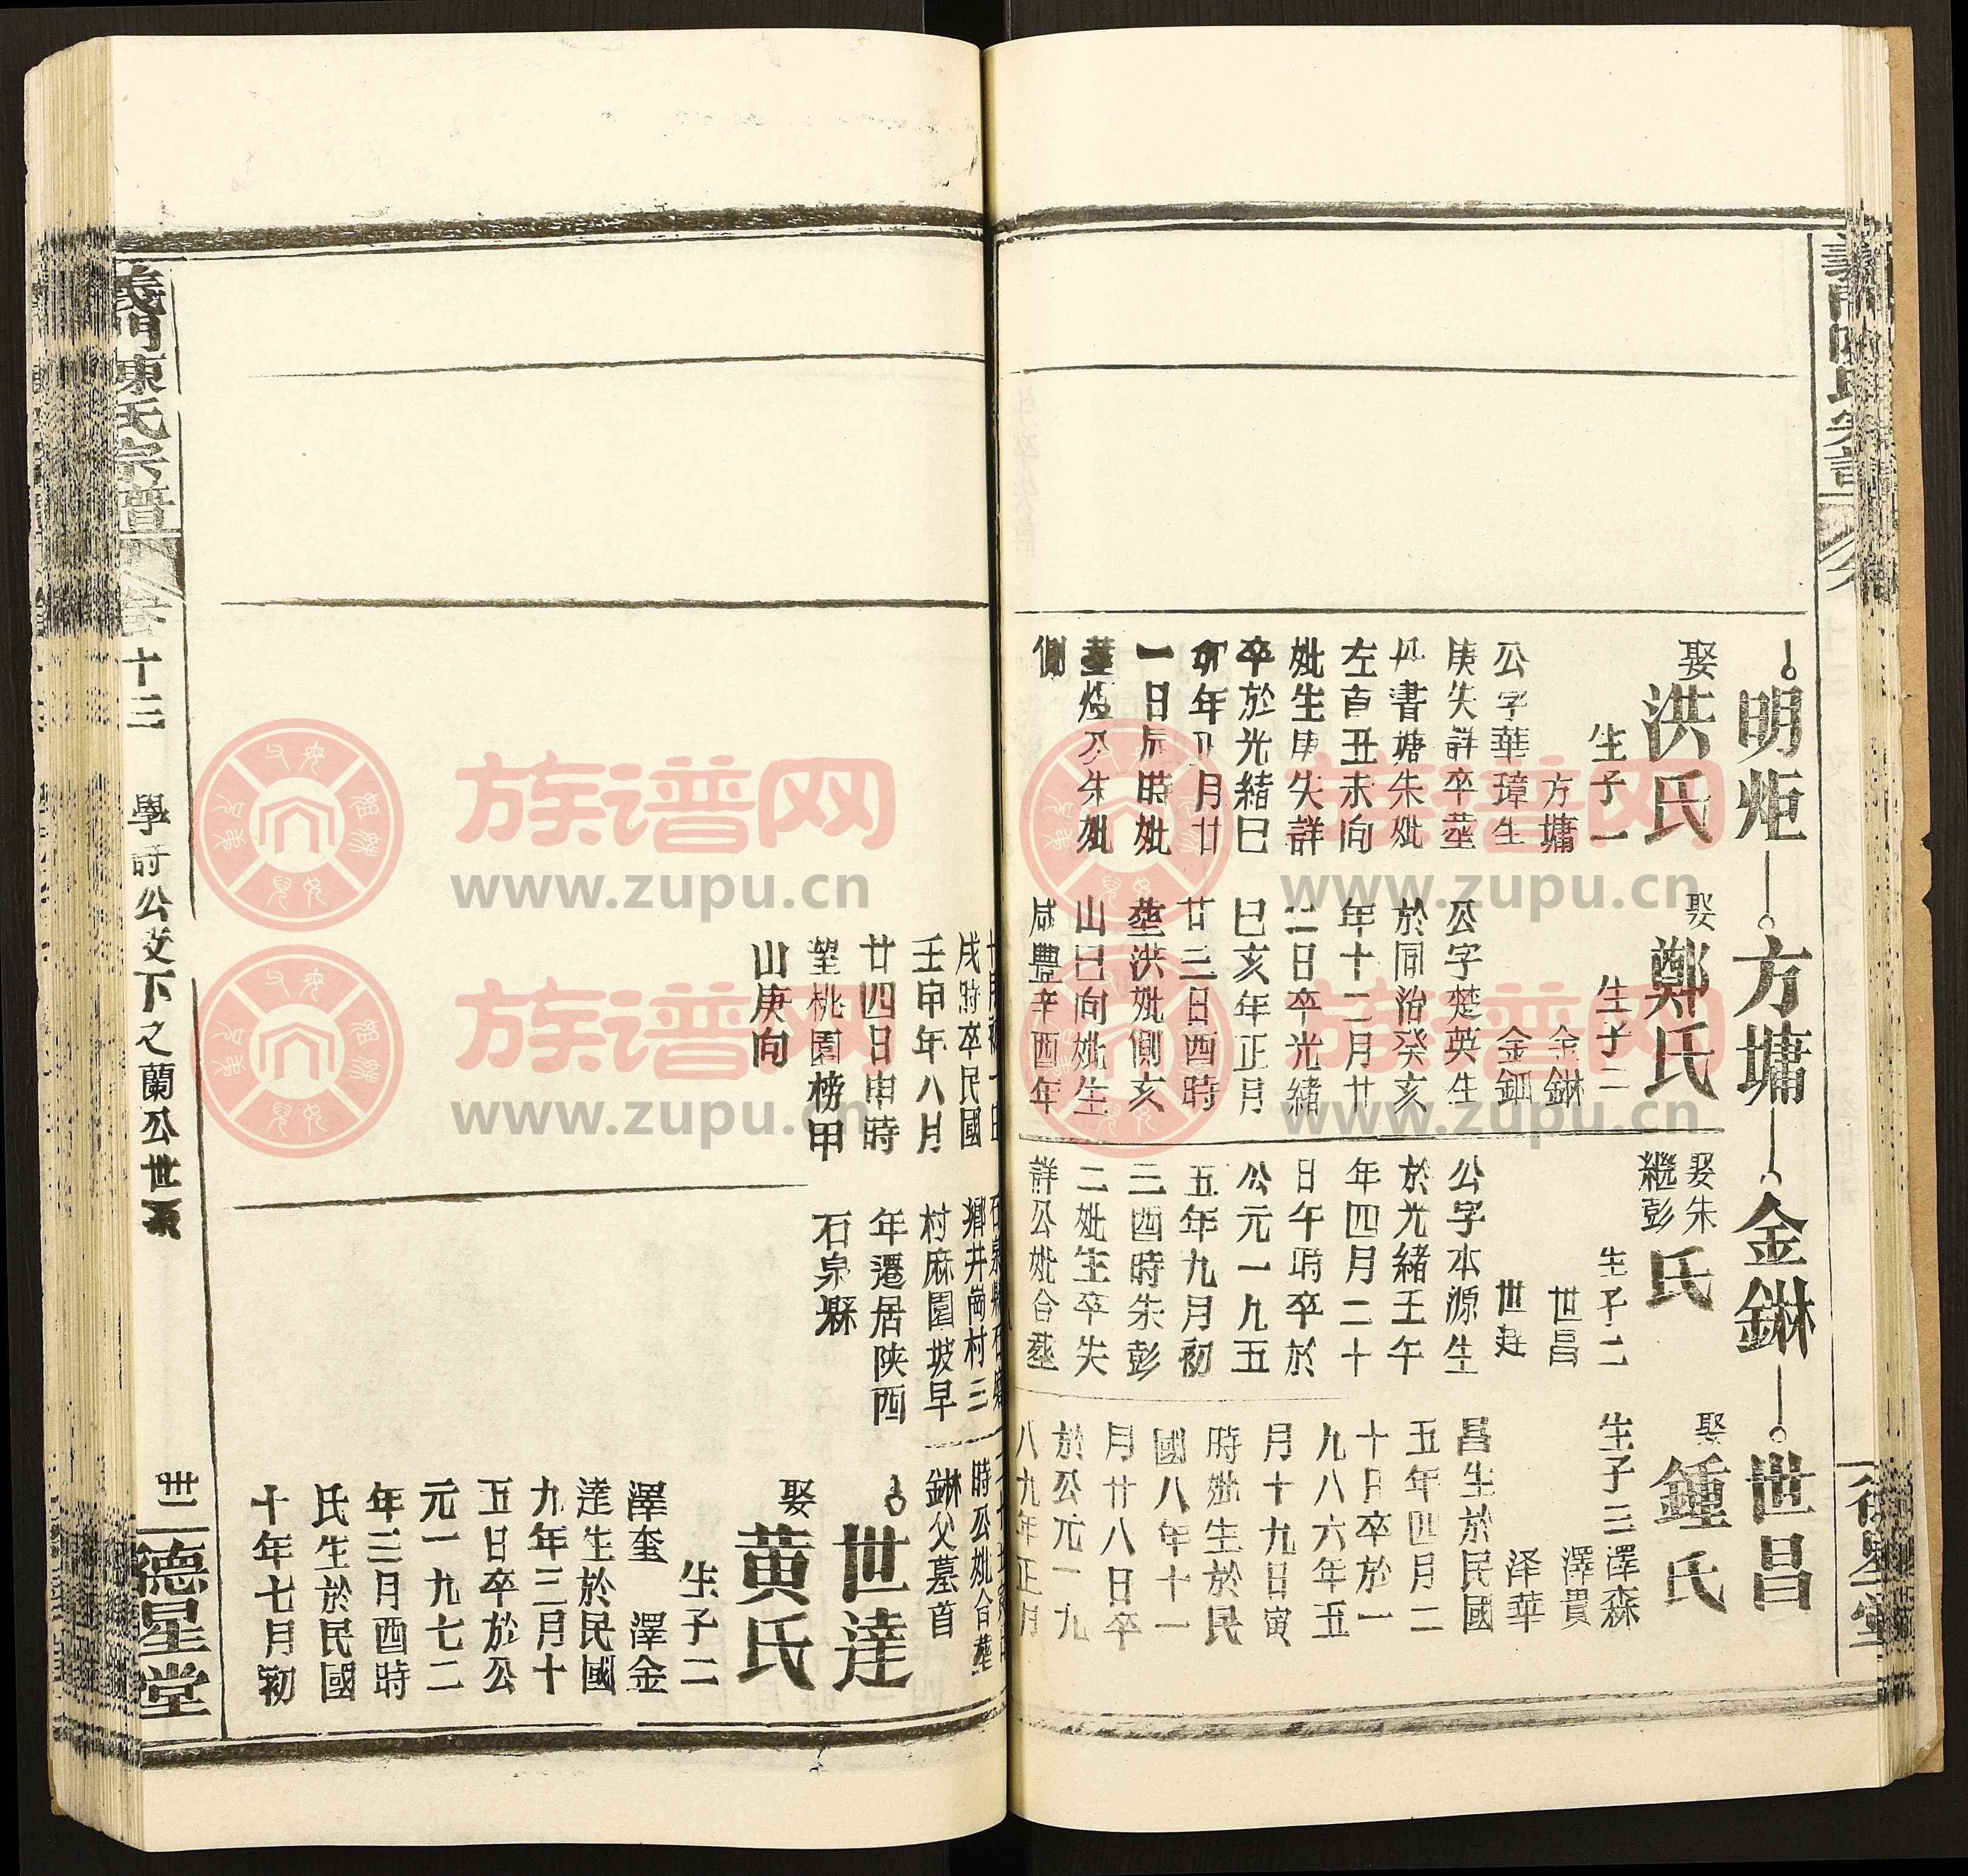 義門陳氏宗譜
明炬
娶洪氏
生子一
方墉
公字華璋生
庚失詳卒塟
丹書塘朱妣
左首丑未向
妣生庚失詳
卒於光緒巳
卯年正月廿
一日辰時妣
塟炬公朱妣
側
方墉
娶鄭氏
生子二
金鏻
金鈿
公字楚英生
於同治癸亥
年十二月廿
二日卒光緒
巳亥年正月
廿三日酉時
塟洪妣側亥
山巳向妣生
咸豐辛酉年
戌時卒民國
壬申年八月
廿四日申時
塟桃園榜甲
山庚向
金鏻
娶朱
繼彭氏
生子二
世昌
世達
公字本源生
於光緒壬午
年四月二十
日午時卒於
公元一九五
五年九月初
二酉時朱彭
二妣生卒失
詳公妣合塟
鄉井崗村三
村麻園坡早
年遷居陕西
石泉縣
世昌
娶鍾氏
生子三澤森
澤貫
泽華
昌生於民國
五年四月二
十日卒於一
九八六年五
月十九日寅
時妣生於民
國八年十一
月廿八日卒
於公元一九
八九年正月
時公妣合塟
鏻父墓首
世達
娶黄氏
生子二
澤奎 澤金
達生於民國
九年三月十
五日卒於公
元一九七二
年三月酉時
氏生於民國
十年七月初
義門陳氏宗譜
卷十三
學詩公支下之蘭公世系
卅一
德星堂
族谱网
www.zupu.cn
族谱网
www.zupu.cn
族谱网
www.zupu.cn
族谱网
www.zupu.cn